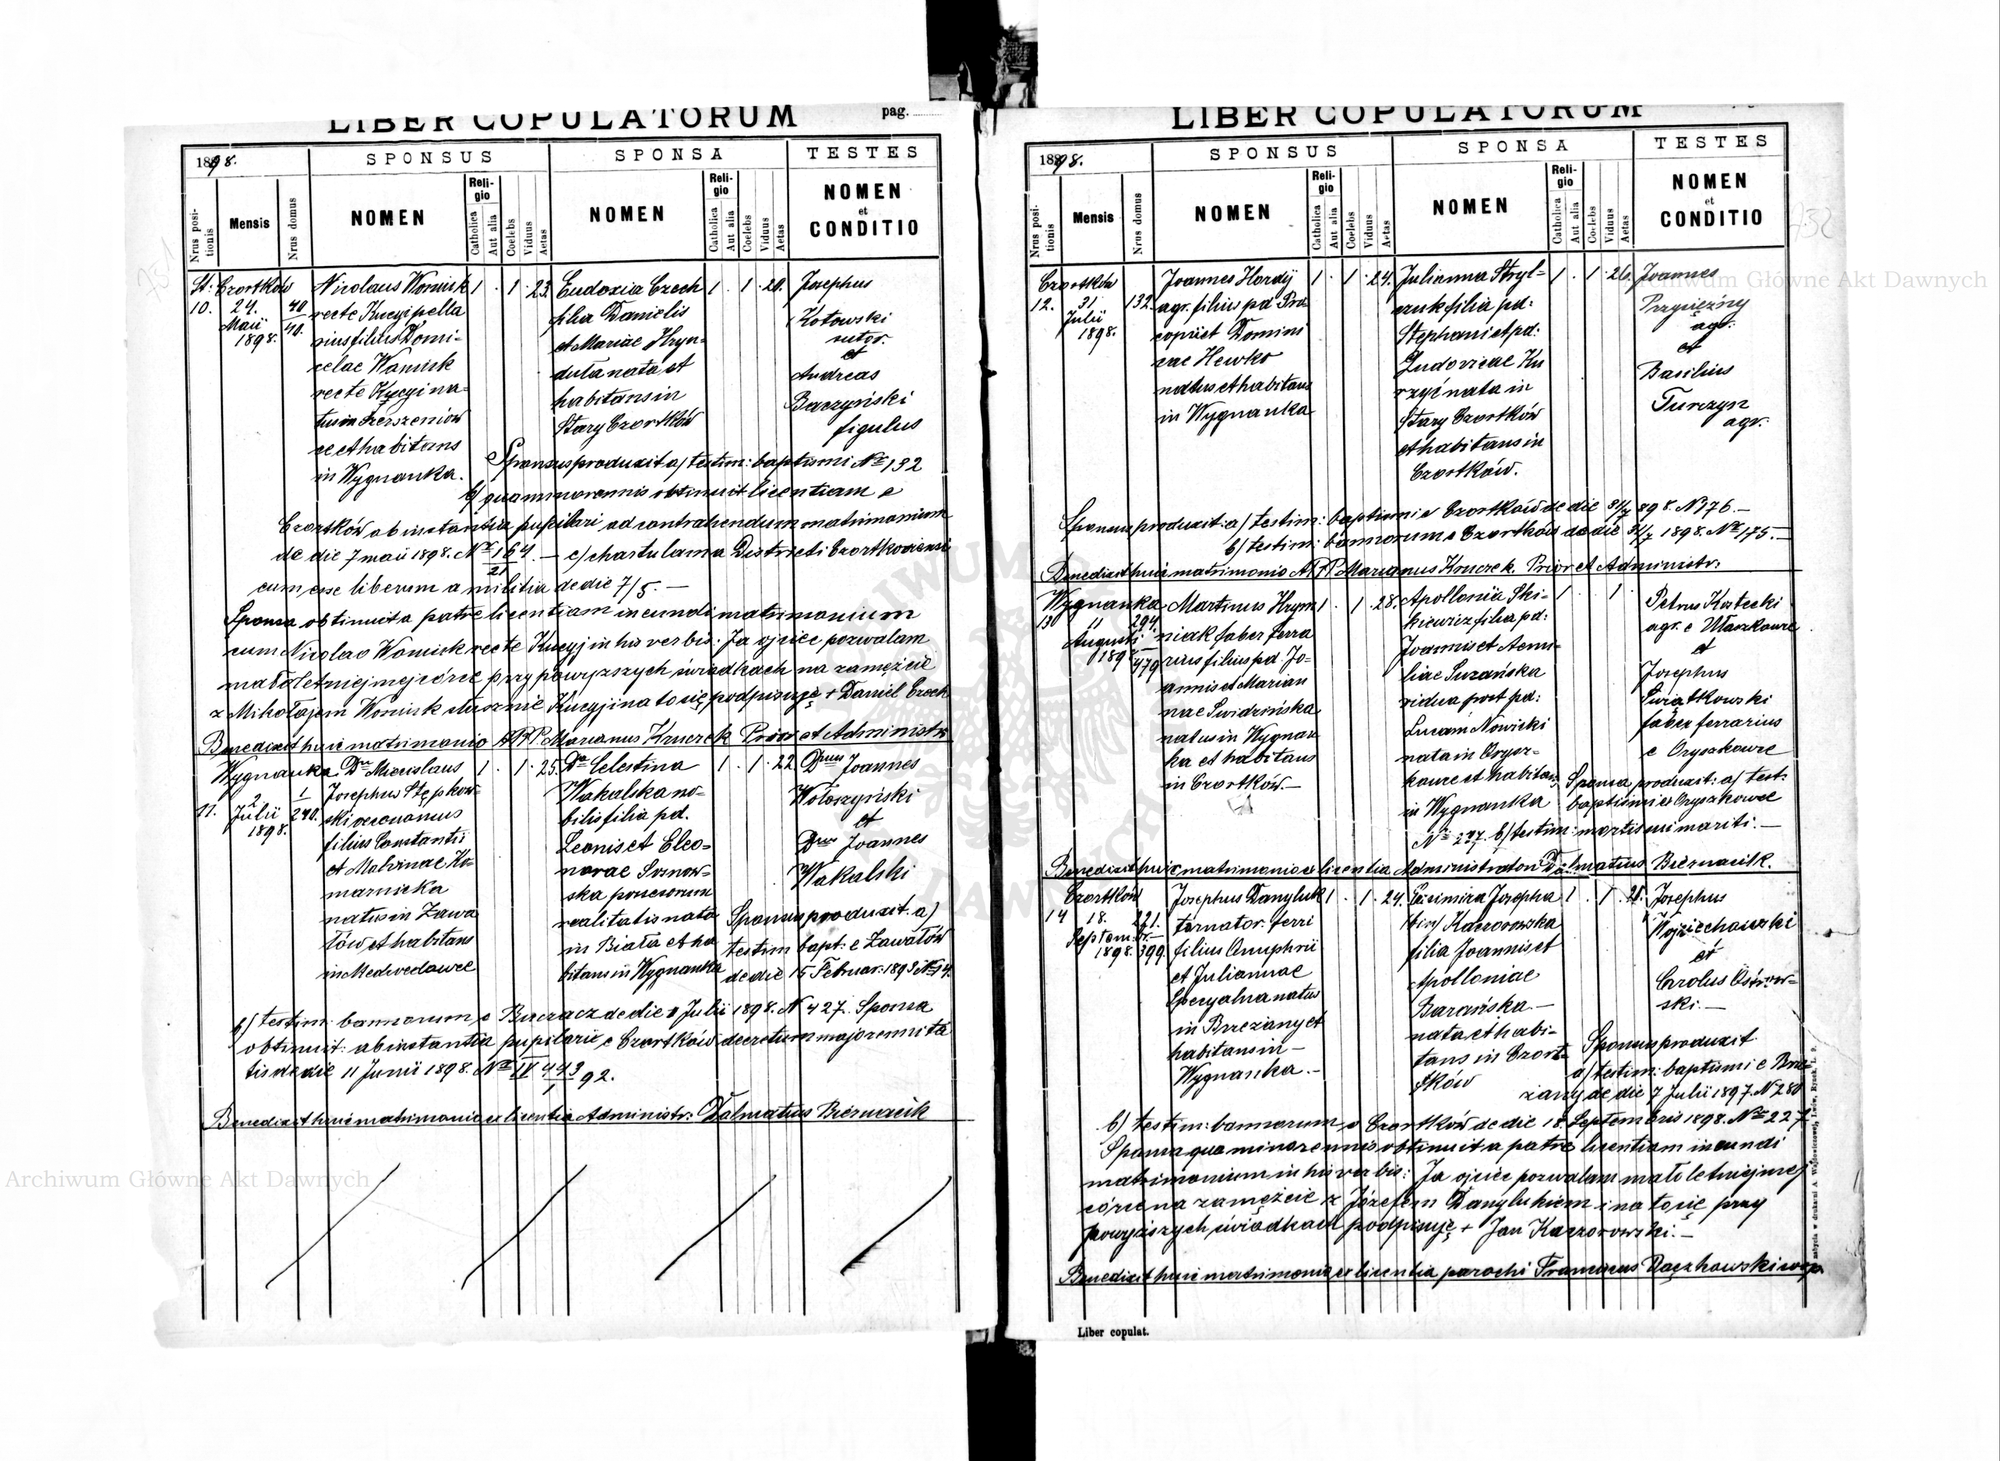 LIBER COPULATORUM
pag.
1898.
SPONSUS
SPONSA
TESTES
Nrus positionis
Mensis
Nrus domus
NOMEN
Religio
Catholica
Aut alia
Coelebs
Viduus
Aetas
NOMEN
Religio
Catholica
Aut alia
Coelebs
Viduus
Aetas
NOMEN
et
CONDITIO
St: Czortków
10.
24.
Maii
1898.
40
40.
Nicolaus Womisk
recte Kucyj pella
rius filius Domi-
celae Womisk
recte Kucyj na-
tus in Szerszeniow
ce et habitans
in Wygnanka.
1 . 1 . 23.
Eudoxia Czech
filia Danielis
et Mariae Hryn-
duta nata et
habitans in
Stary Czortków
1 . 1 . 20.
Josephus
Kotowski
sutor.
et
Andreas
Baczyński
figulus
Sponsus produxit a) testim: baptismi Nr 132
b) qua minorennis obtinuit licentiam e
Czortków ab instantia pupilari ad contrahendum matrimonium
de die 7 maii 1898. Nr 164/21 . — c) chartulam a Districti Czortkoviensi
cum esse liberum a militia de die 7/5. —
Sponsa obtinuit a patre licentiam incundi matrimonium
cum Nicolao Womisk recte Kucyj in his verbis: Ja ojciec pozwalam
małoletniej mej córce przy powyższych świadkach na zamęźcie
z Mikołajem Womisk słusznie Kucyj i na to się podpisuję + Daniel Czech
Benedixit huic matrimonio ARP Marianus Kruczek Prior et Administr
Wygnanka
11.
2
Julii
1898.
1
240.
Dnus Miecislaus
Josephus Stępkow-
ski oeconomus
filius Constantii
et Malvinae Ko-
marnicka
natus in Zawa
łów et habitans
in Medwedowce
1 . 1 . 25.
Dna Celestina
Wakalska no-
bilis filia pd.
Leonis et Eleo-
norae Sosnow-
ska poscesorum
realitatis nata
in Biała et ha
bitans in Wygnanka
1 . 1 . 22
Dnus Joannes
Wołoszyński
et
Dnus Joannes
Wakalski
Sponsus produxit. a)
testim bapt: e Zawałów
de die 15 Februar. 1893 Nr 14.
b) testim: bannorum e Buczacz de die 1 Julii 1898. N 427. Sponsa
obtinuit: ab instantia pupilari e Czortków decretum majorennita
tis de die 11 Junii 1898. Nr IV 443/1 92.
Benedixit huic matrimonio ex licentia Administr: Dalmatius Biernacik
LIBER COPULATORUM
1898.
SPONSUS
SPONSA
TESTES
Nrus positionis
Mensis
Nrus domus
NOMEN
Religio
Catholica
Aut alia
Coelebs
Viduus
Aetas
NOMEN
Religio
Catholica
Aut alia
Coelebs
Viduus
Aetas
NOMEN
et
CONDITIO
Czortków
12.
31
Julii
1898.
132.
Joannes Hordij
agr. filius pd Pro
copii et Domini
cae Hewko
natus et habitans
in Wygnanka
1 . 1 . 24.
Julianna Stryl-
czuk filia pd:
Stephani et pd:
Ludovicae Ku
rzyć nata in
Stary Czortków
et habitans in
Czortków.
1 . 1 . 26.
Joannes
Przyiezny
agr.
et
Basilius
Turczyn
agr.
Sponsus produxit: a) testim: baptismi e Czortków de die 31/7 898 N 176. —
b) testim: bannorum e Czortków de die 31/7 1898. Nr 175. —
Benedixit huic matrimonio ARP Marianus Kruczek Prior et Administr.
Wygnanka
13
11
Augusti
1898
294
479
Martinus Hrym
niak faber ferra
rius filius pd Jo-
annis et Marian
nae Swidzińska
natus in Wygnan
ka et habitans
in Czortków. —
1 1 28.
Apollonia Ski-
kiewicz filia pd:
Joannis et Aemi-
liae Suzańska
vidua post pd:
Lucam Nowicki
nata in Orysz-
kowce et habitans
in Wygnanka
1 1
Petrus Kostecki
agr. e Ułaszkowce
et
Josephus
Świątkowski
faber ferrarius
e Oryszkowce
Sponsa produxit: a) test:
baptismi e Oryszkowce
Nr 237. b) testim: mortis sui mariti. —
Benedixit huic matrimonio ex licentia Administratori Dalmatius Biernacik.
Czortków
14
18.
Septembr.
1898.
221.
399.
Josephus Danyluk
tornator ferri
filius Onuphrii
et Juliannae
Specyalna natus
in Brzeżany et
habitans in —
Wygnanka. —
1 . 1 . 24.
Casimira Josepha
Kaczorowska
filia Joannis et
Apolloniae
Barańska —
nata et habi-
tans in Czort-
tków
1 . 1
Josephus
Wojciechowski
et
Carolus Ostrow-
ski. —
Sponsus produxit
a) testim: baptismi e Brze
żany de die 7 Julii 1897. N 280
b) testim: bannorum e Czortków de die 18. Septembris 1898. Nr 227
Sponsa qua minorennis obtinuit a patre licentiam incundi
matrimonium in his verbis: Ja ojciec pozwalam małoletniej mej
córce na zamęźcie z Józefem Danylukiem i na to się przy
powyższych świadkach podpisuję + Jan Kaczorowski. —
Benedixit huic matrimonio ex licentia parochi Franciscus Rączkowski
Liber copulat.
Archiwum Główne Akt Dawnych
Archiwum Główne Akt Dawnych